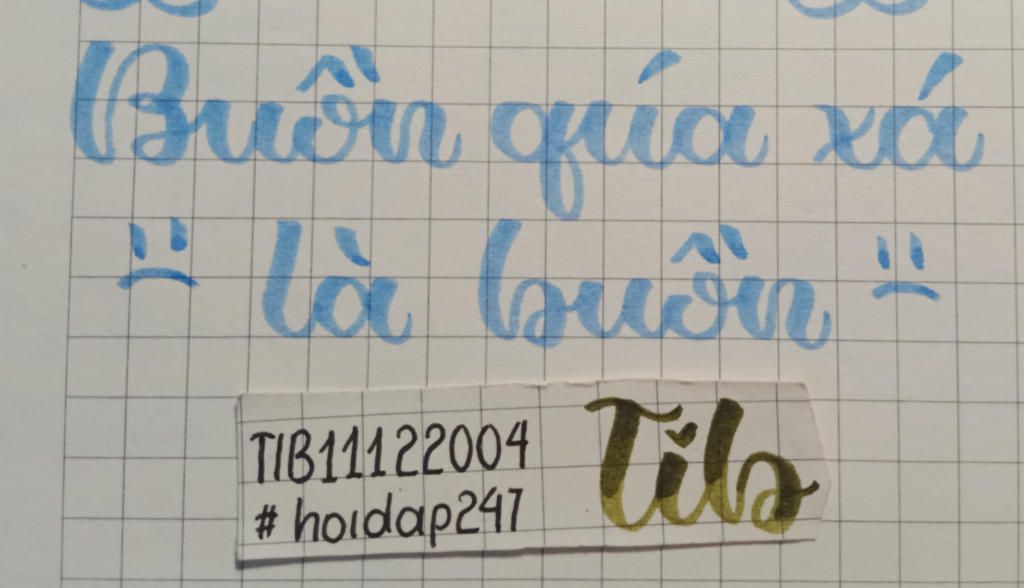 Buồn qúa xá
là buồn
TIB11122004
Tib
# hoidap247